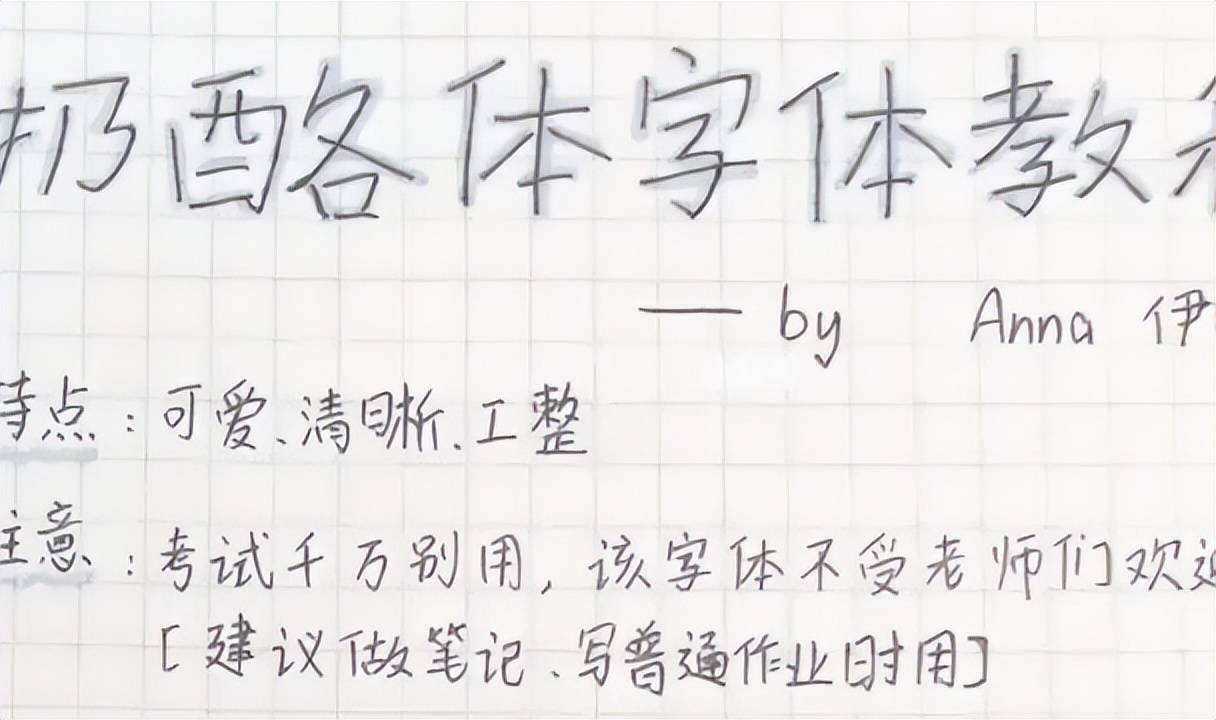 奶酪体字体教
— by Anna 伊
特点：可爱、清晰、工整
注意：考试千万别用，该字体不受老师们欢迎
[建议做笔记、写普通作业时用]